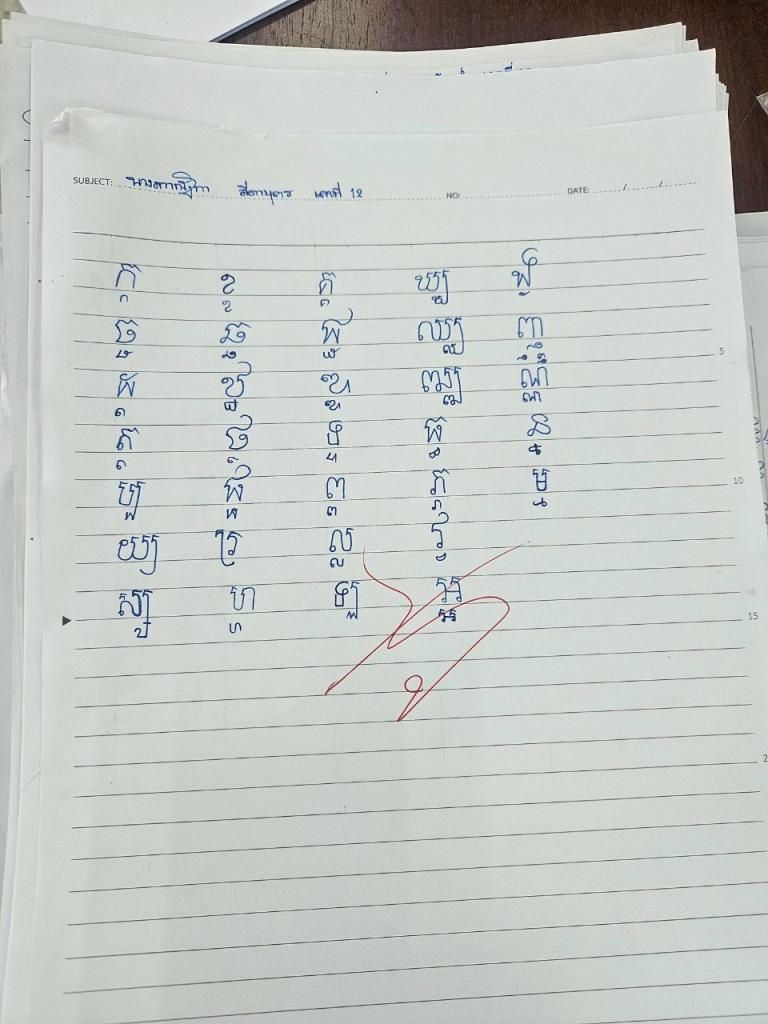 SUBJECT: นางดาณุิภา สีดาบุตร เลขที่ 12 NO: DATE: / /
ក្ក ខ្ខ គ្គ ឃ្ឃ ង្ង
ច្ច ឆ្ឆ ជ្ជ ឈ្ឈ ញ្ញ
5
ដ្ដ ឋ្ឋ ឌ្ឌ ឍ្ឍ ណ្ណ
ត្ត ថ្ថ ទ្ទ ធ្ធ ន្ន
ប្ប ផ្ផ ព្ព ភ្ភ ម្ម
10
យ្យ រ្រ ល្ល វ្វ
ស្ស ហ្ហ ឡ្ឡ អ្អ
15